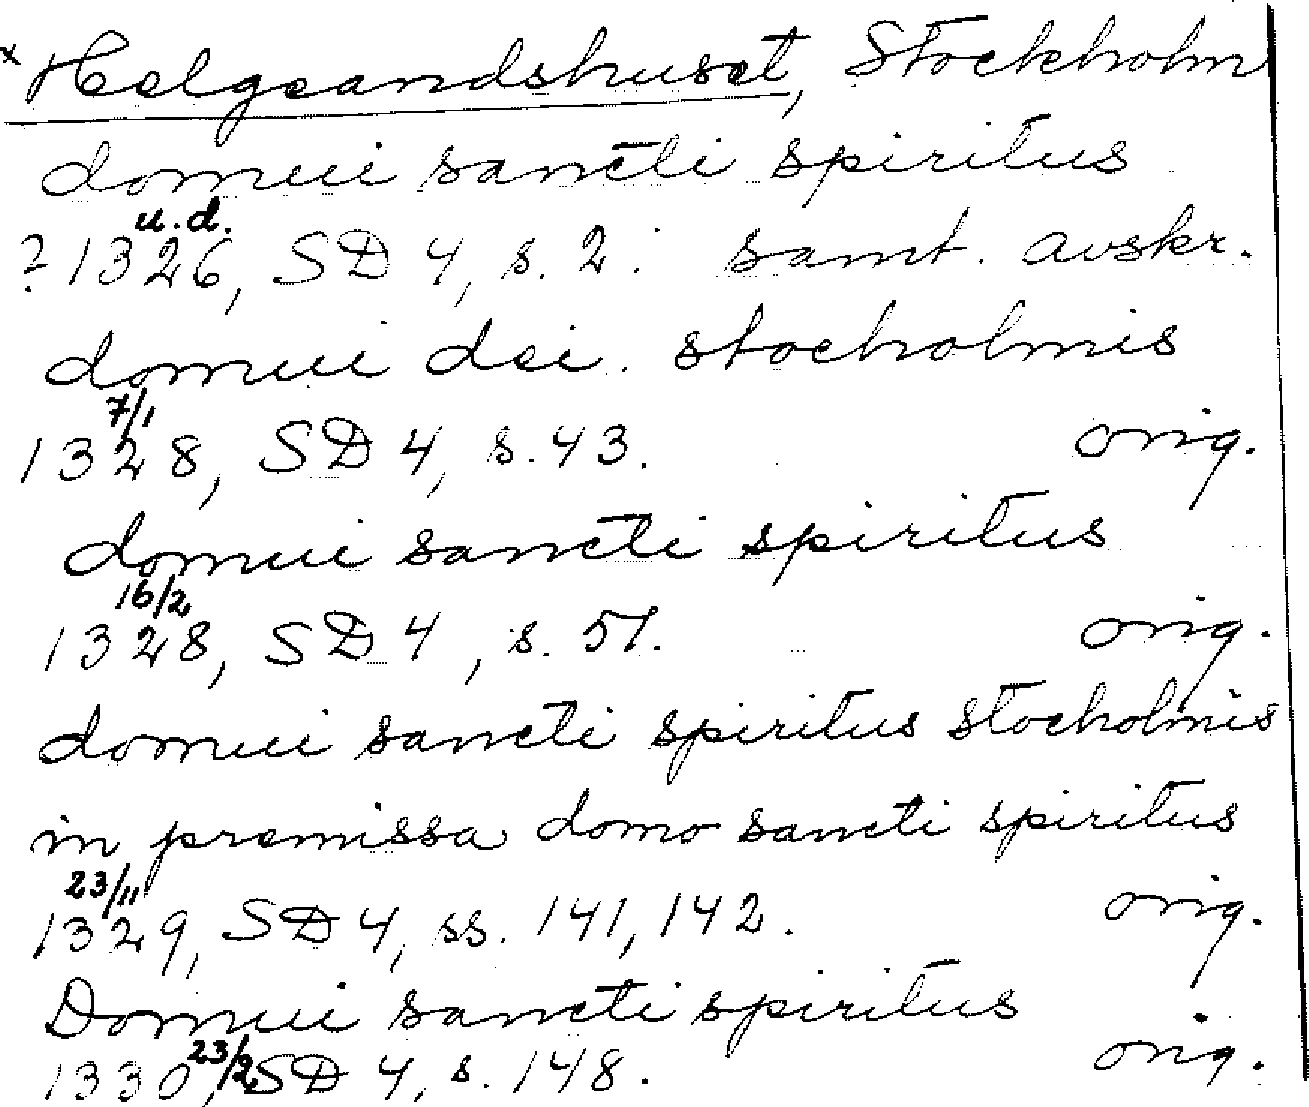 x Helgeandshuset, Stockholm
domui sancti spiritus
u.d.
? 1326, SD 4, s. 2. samt. avskr.
domui dei. stocholmis
7/1
1328, SD 4, s. 43. orig.
domui sancti spiritus
16/2
1328, SD 4, s. 51. orig.
domui sancti spiritus stocholmis
in premissa domo sancti spiritus
23/11
1329, SD 4, ss. 141, 142. orig.
Domui sancti spiritus
23/2
1330, SD 4, s. 148. orig.